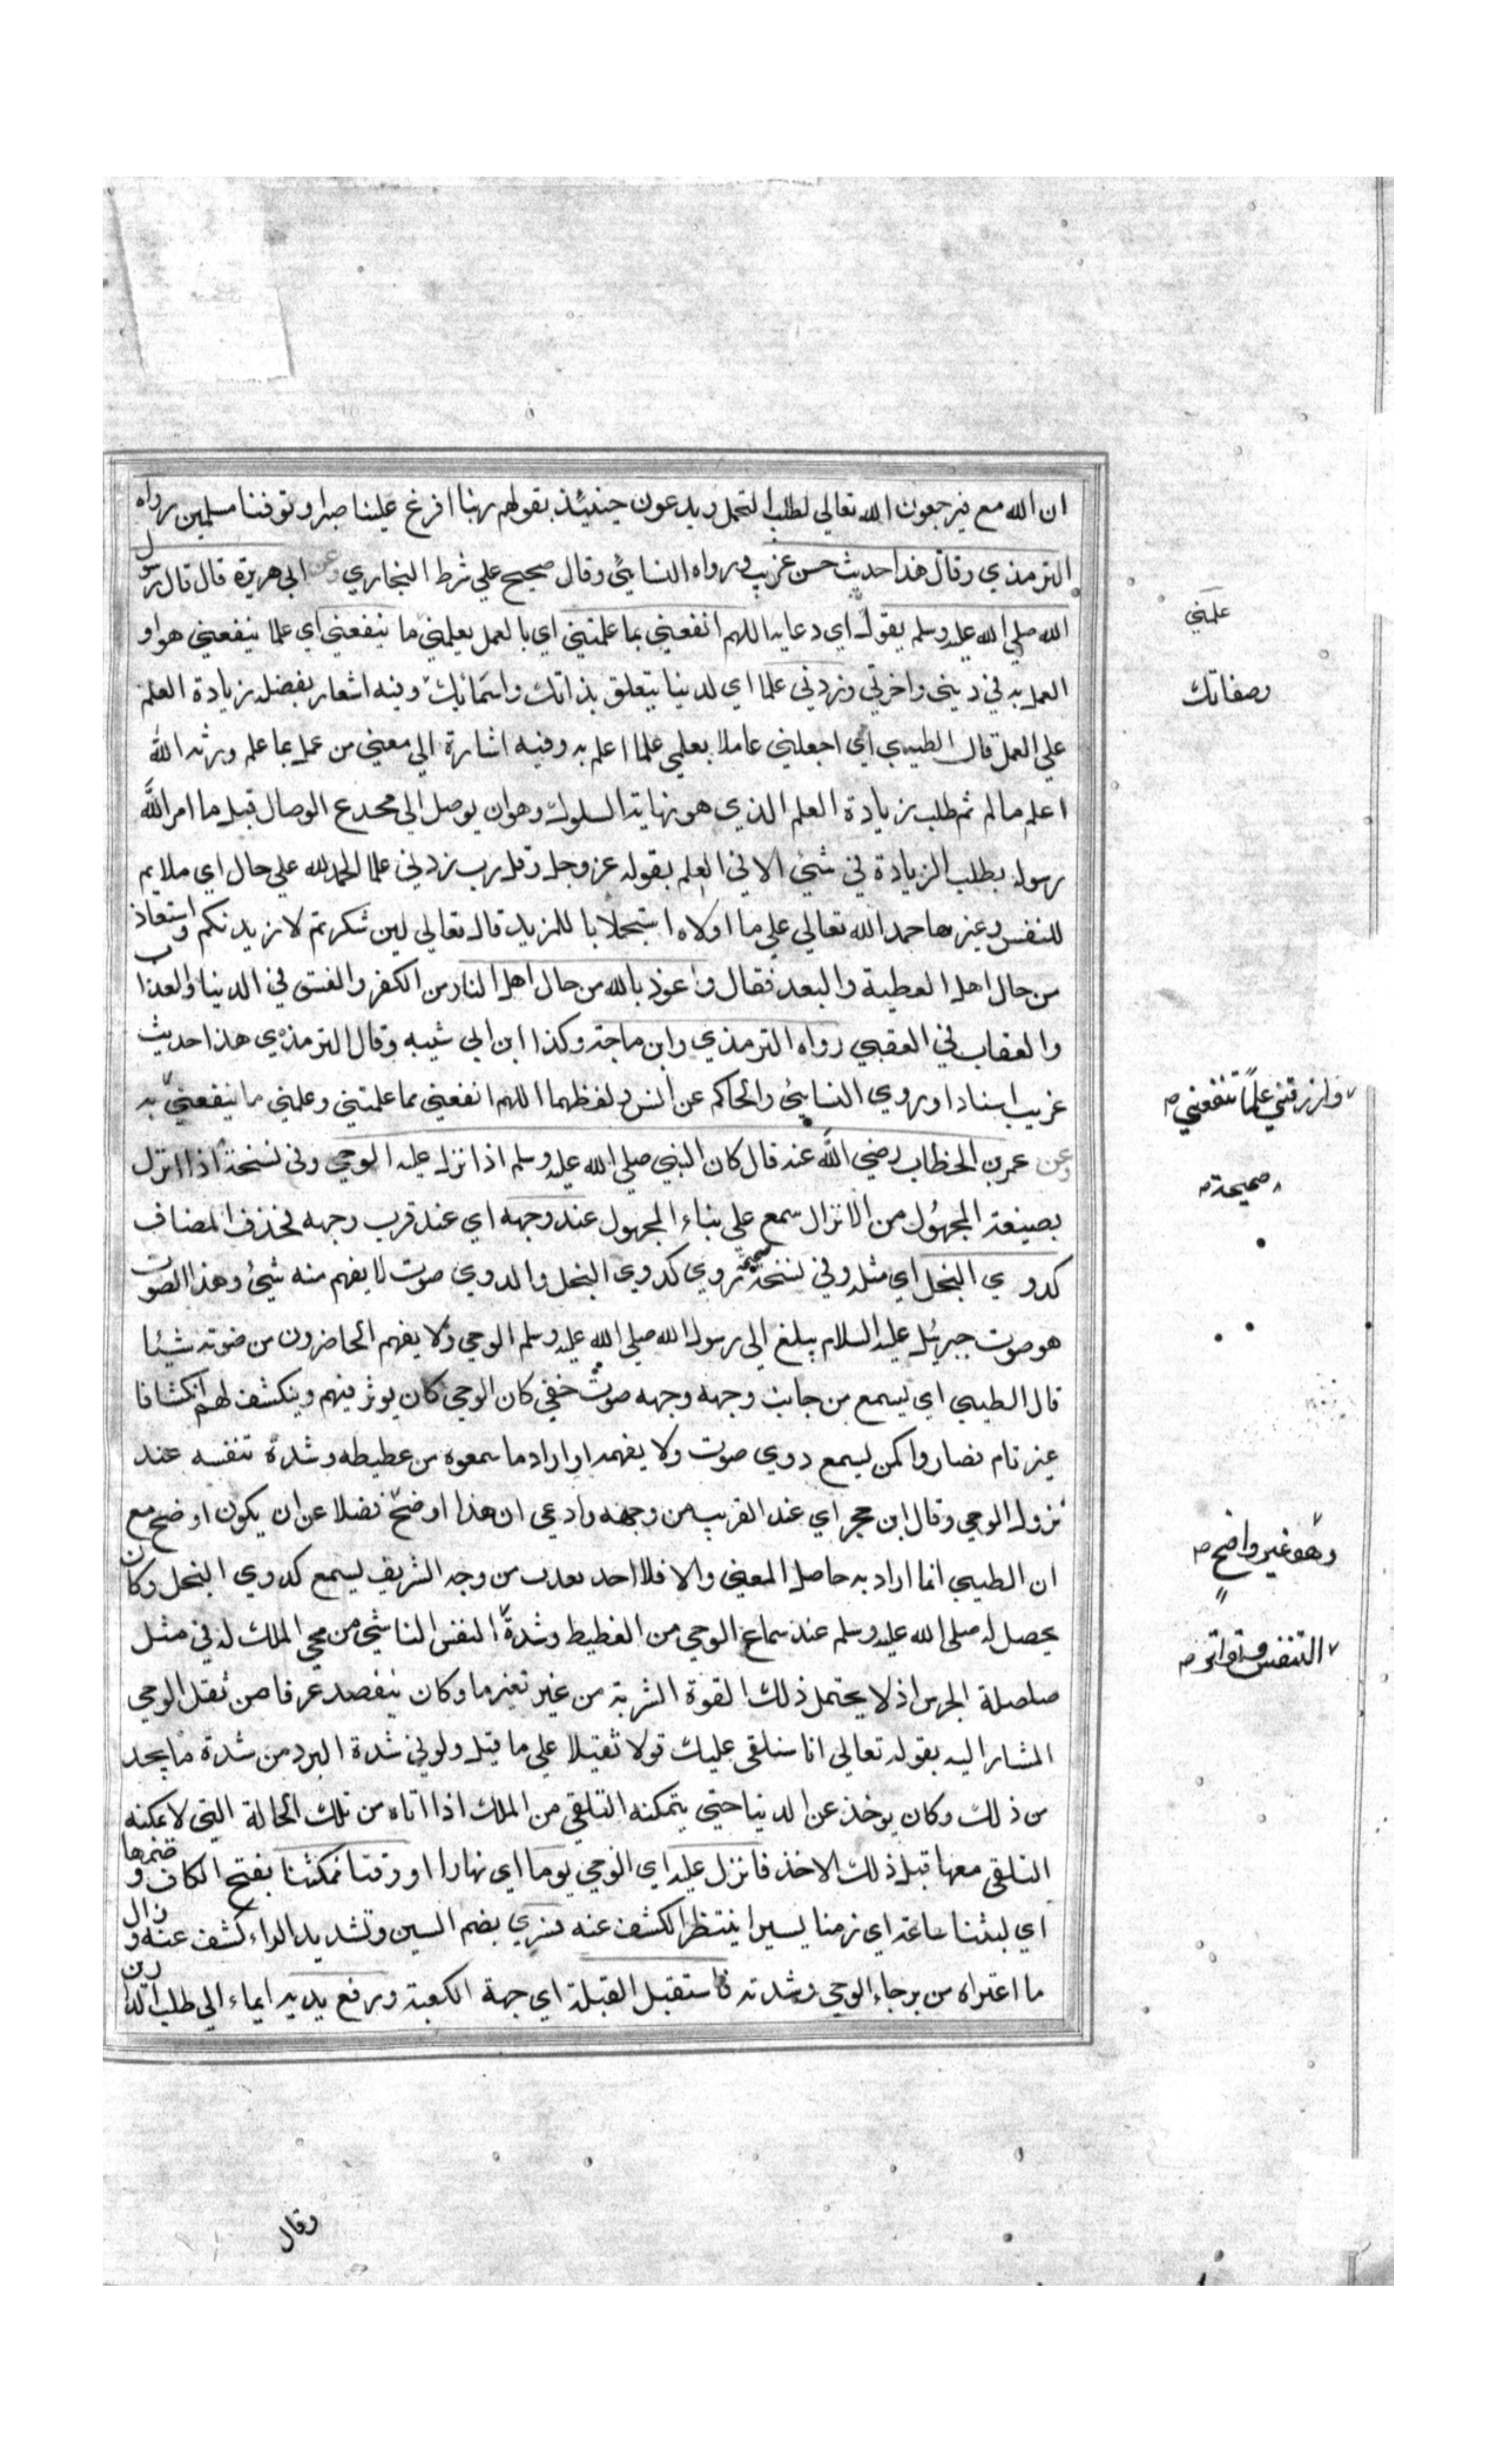 ان الله مع فيرجعون الله تعالي لطلب التحمل ويدعون حينئذ بقولهم ربنا افرغ علينا صبرا وتوفنا مسلمين رواه
الترمذي وقال هذا حديث حسن غريب ورواه النسائي وقال صحيح علي شرط البخاري وعن ابي هريرة قال قال رسول
الله صلي الله عليه وسلم يقول اي دعايه اللهم انفعني بما علمتني اي بالعمل بعلمني ما ينفعني اي علما ينفعني هو او
علمني
العمل به في ديني واخرتي وزدني علما اي لدنيا يتعلق بذاتك واسمائك وفيه اشعار بفضل زيادة العلم
وصفاتك
علي العمل قال الطيبي اي اجعلني عاملا بعلمي علما اعلم به وفيه اشارة الي معني من عمل بما علم ورثه الله
اعلم مالم ثم طلب زيادة العلم الذي هو نهاية السلوك وهو ان يوصل الي مخدع الوصال قبل ما امر الله
رسوله بطلب الزيادة في شئ الا في العلم بقوله عز وجل وقل رب زدني علما الحمد لله علي حال اي ملايم
للنفس وغيرها حمد الله تعالي علي ما اولاه استجلابا للمزيد قال تعالي لين شكرتم لازيدنكم واستعاذ
من حال اهل العطية والبعد فقال واعوذ بالله من حال اهل النار من الكفر والفسق في الدنيا والعذاب
والعقاب في العقبي رواه الترمذي وابن ماجة وكذا ابن ابي شيبه وقال الترمذي هذا حديث
غريب اسنادا وروي النسائي والحاكم عن انس ولفظهما اللهم انفعني بما علمتني وعلمني ما ينفعني به
وارزقني علما تنفعني
وعن عمر بن الخطاب رضي الله عنه قال كان النبي صلي الله عليه وسلم اذا نزل عليه الوحي وفي نسخة اذا انزل
صحيحة
بصيغة المجهول من الانزال سمع علي بناء المجهول عند وجهه اي عند قرب وجهه بحذف المضاف
كدوي النحل اي مثله وفي نسخة صحيحة دوي كدوي النحل والدوي صوت لا يفهم منه شئ وهذا الصوت
هو صوت جبريل عليه السلام يبلغ الي رسول الله صلي الله عليه وسلم الوحي ولا يفهم الحاضرون من صوته شيئا
قال الطيبي اي يسمع من جانب وجهه وجهه صوت خفي كان الوحي كان يوثر فيهم وينكشف لهم انكشافا
غير تام فصاروا كمن يسمع دوي صوت ولا يفهمه او اراد ما سمعوه من غطيطه وشدة تنفسه عند
نزول الوحي وقال ابن حجر اي عند القرب من وجهه وادعي ان هذا اوضح فضلا عن ان يكون اوضح مع
وهو غير واضح
ان الطيبي انما اراد به حاصل المعني والا فلا احد يعدب من وجه الشريف يسمع كدوي النحل وكان
يحصل له صلي الله عليه وسلم عند سماع الوحي من الغطيط وشدة النفس الناشئ من مجي الملك له في مثل
التنفس وتواتره
صلصلة الجرس اذ لا يحتمل ذلك القوة البشرية من غير تغير ما وكان يتفصد عرقا من ثقل الوحي
المشار اليه بقوله تعالي انا سنلقي عليك قولا ثقيلا علي ما قيل ولو في شدة البرد من شدة ما يجد
من ذلك وكان يوخذ عن الدنيا حتي يتمكنه التلقي من الملك اذا اتاه من تلك الحالة التي لا يمكنه
التلقي معها قبل ذلك الاخذ فانزل عليه اي الوحي يوما اي نهارا او وقتا فمكثنا بفتح الكاف وضمها
اي لبثنا ساعة اي زمنا يسيرا ينتظر الكشف عنه فسري بضم السين وتشديد الراء كشف عنه وزال
ما اعتراه من برحاء الوحي وشدته فاستقبل القبلة اي جهة الكعبة ورفع يديه ايماء الي طلب الدارين
وقال